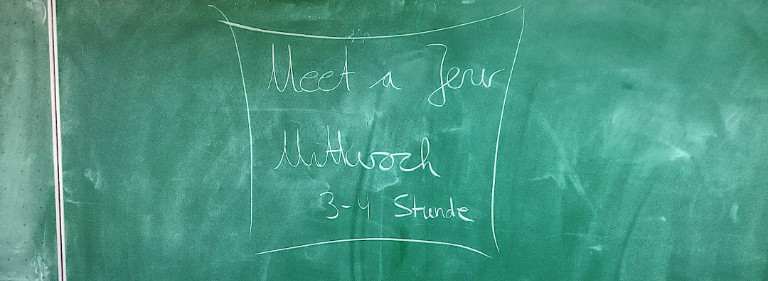 Meet a Jew
Mittwoch
3-4 Stunde